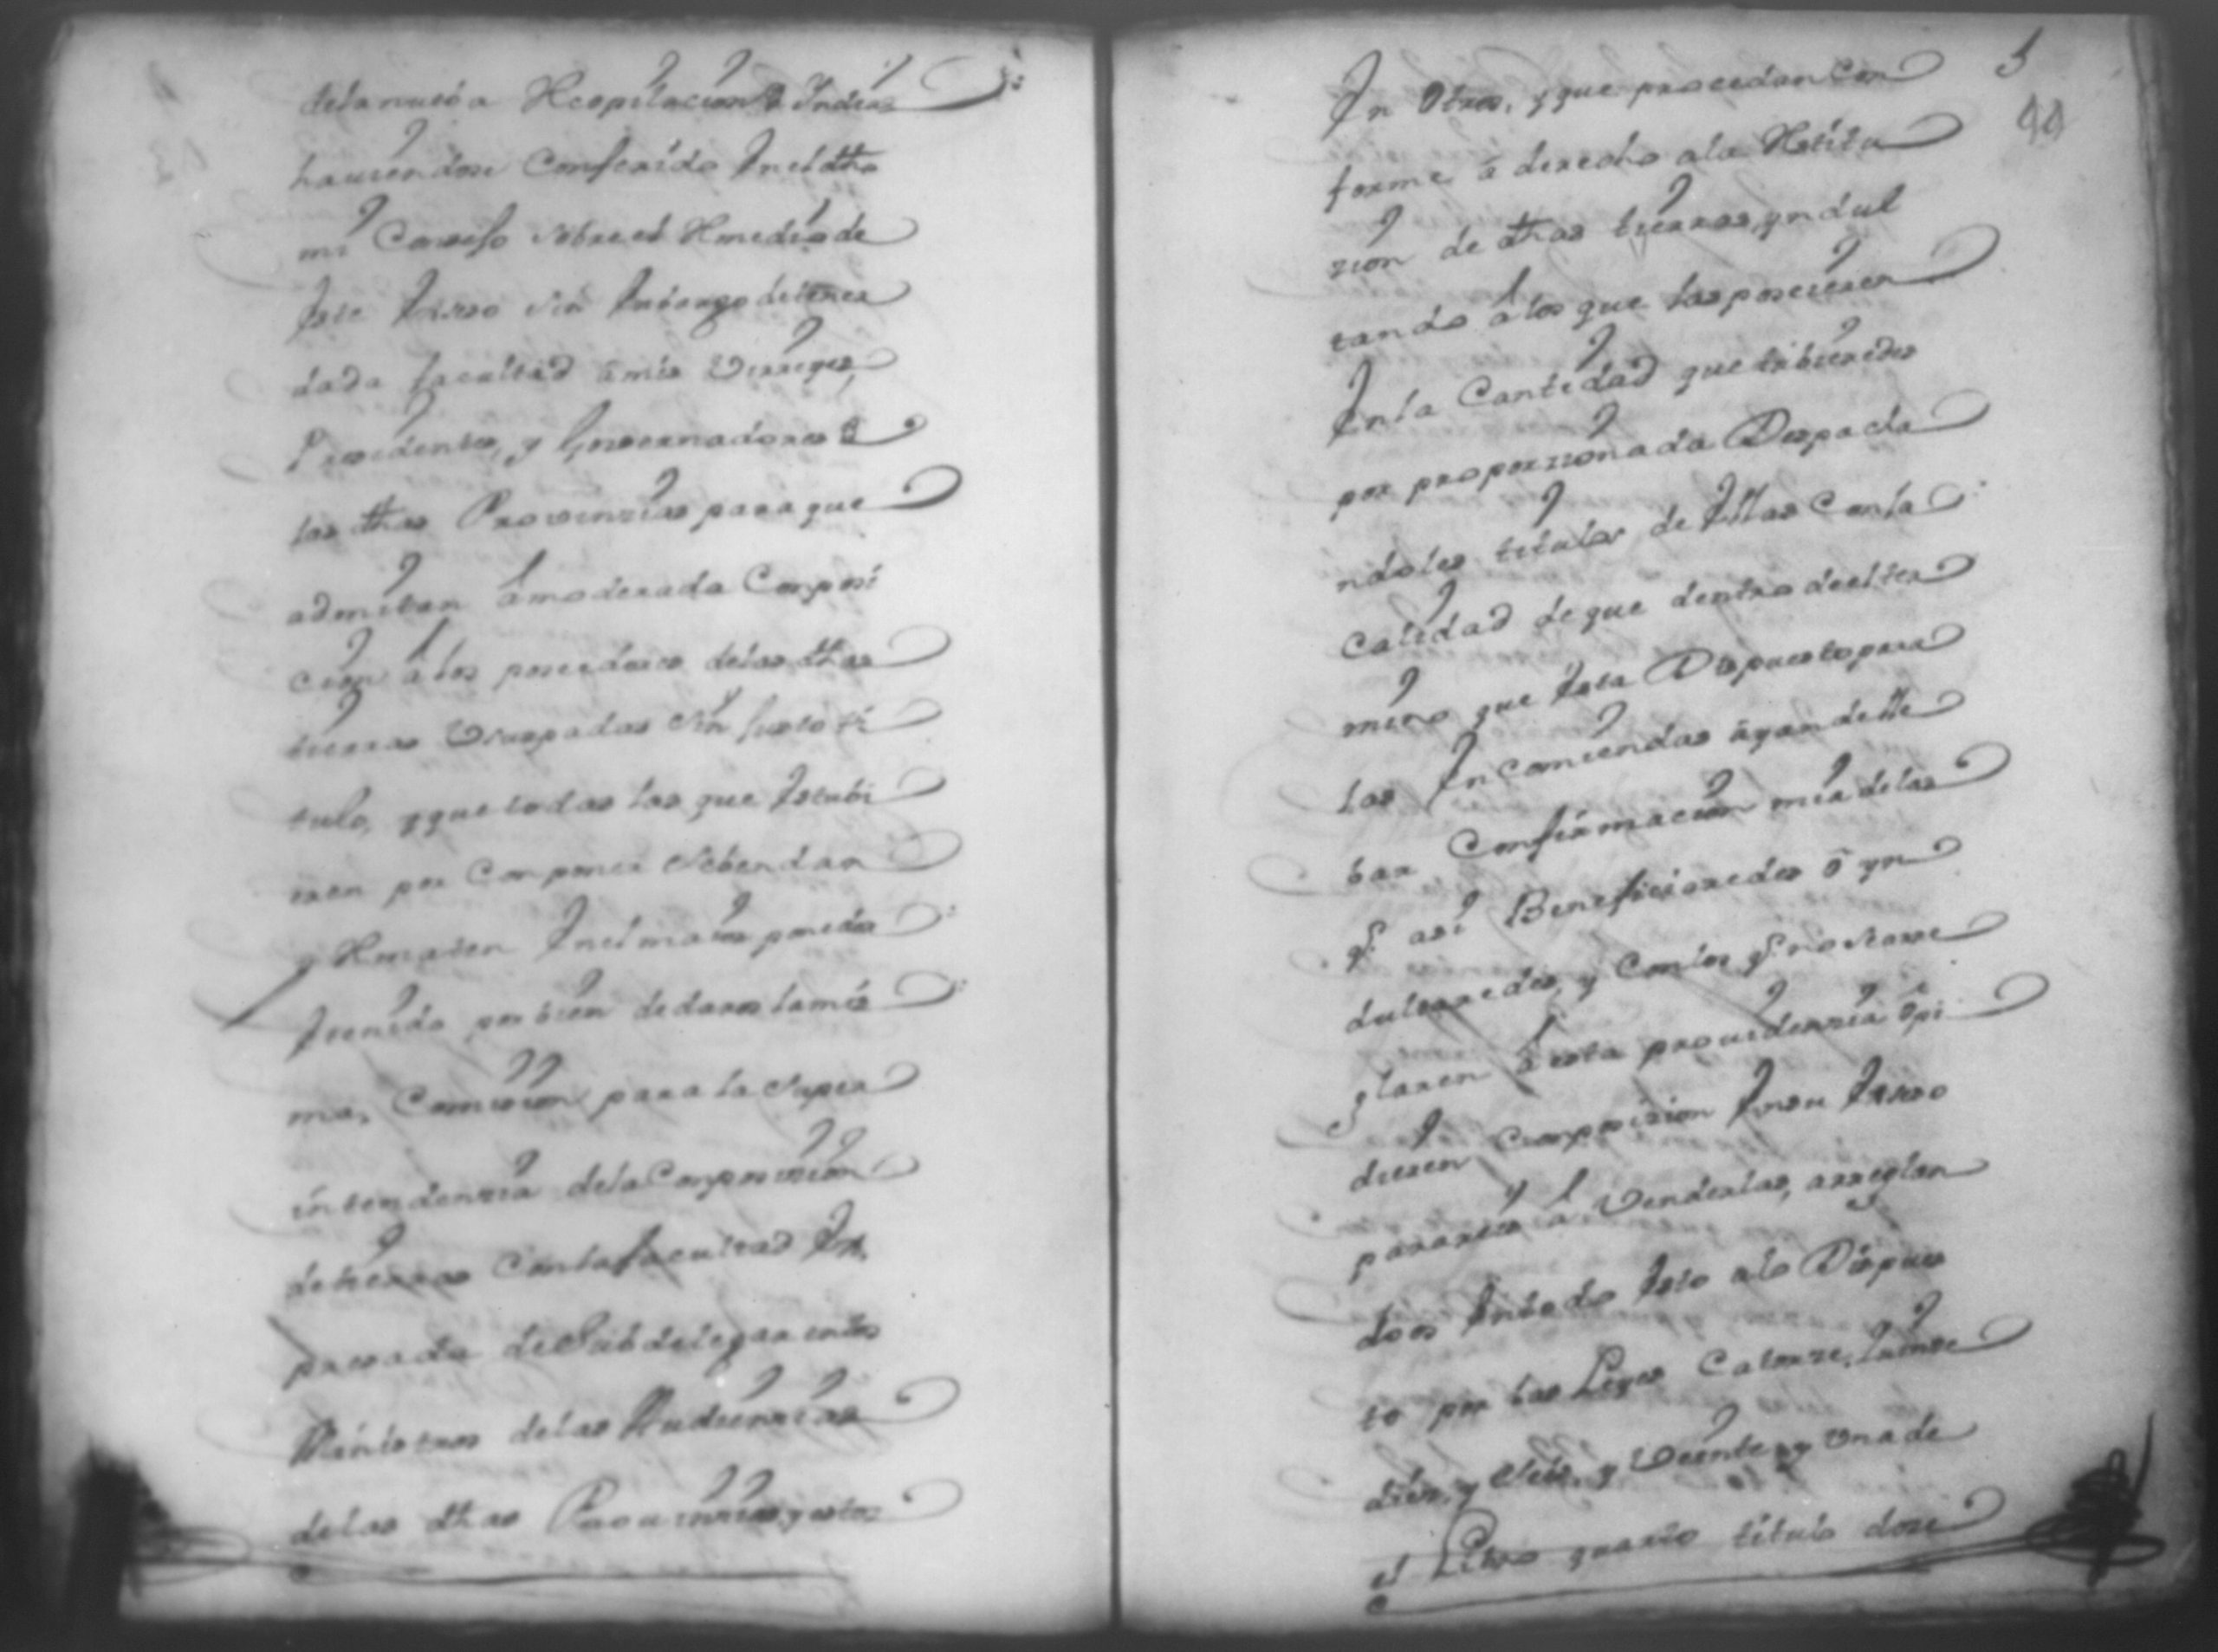 dela nueba Recopilacion de Indias
hauiendose Conferido En el dho
mi Consejo sobre el Remedio de
Este Exseso sin Embargo de tener
dada facultad â mis Virreyes,
Presidentes, y Governadores de
las dhas Provinzias para que
admitan â moderada Composi
cion â los poseedores delas dhas
tierras Vsurpadas sin justo ti
tulo, y que todas las que Estubi
eren por Componer se bendan
y Rematen En el maior ponedor
E tenido por bien de daros la mis
ma, Comision para la super
intendenzia de la Composizion
de tierras Con la facultad Ex
presada de Subdelegar en los
Ministros delas Audienzias
delas dhas Prouinzias, y estos
En Otros, y que procedan Con
forme â derecho a la Restitu
zion de dhas tierras, yndul
tando â los que las poseieren
En la Cantidad que tubieredes
por proporzionada Despacha
ndoles titulos de Ellas Con la
Calidad de que dentro de el ter
mino que Esta Dispuesto para
las Encomiendas ayan de lle
bar Confirmacion mia de las
q.e asi Beneficiaredes ô yn
dultaredes, y Con los q.e no se arre
glaren â esta prouidenzia ô pi
dieren Composizion En su Exseso
pasareis â Venderlas, arreglan
doos En todo Esto a lo Dispues
to por las Leyes Catorze, quinze
diez, y Seis, y Veinte, y Vna de
el Libro quarto titulo doze